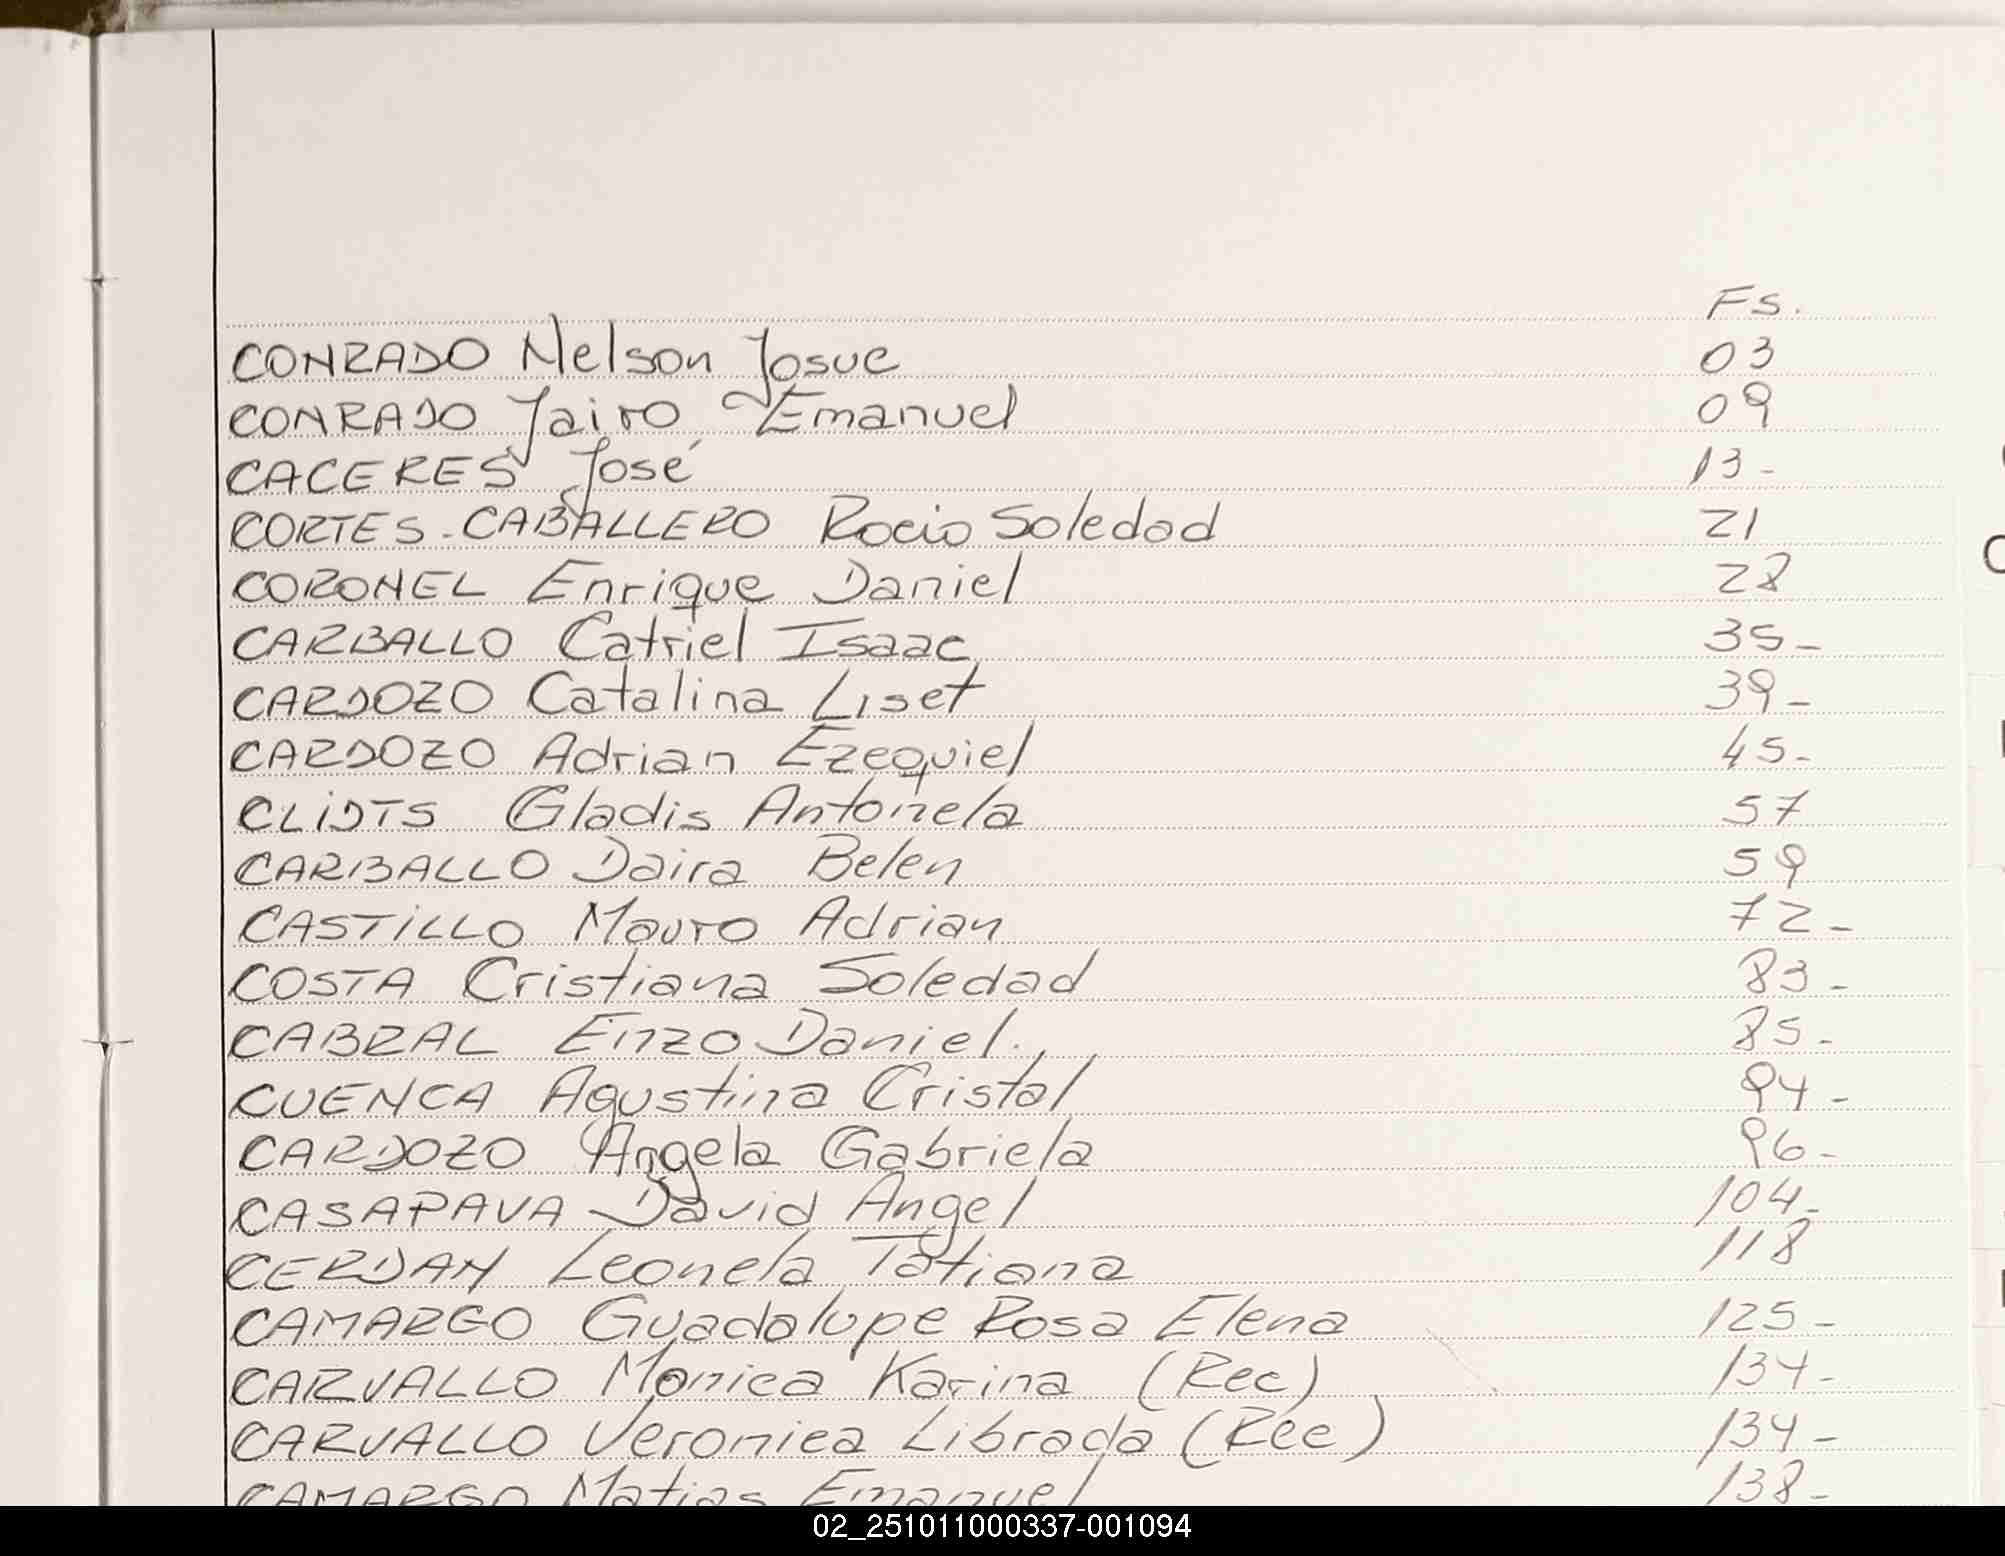 Fs.
CONRADO Nelson Josue 03
CONRADO Jairo Emanuel 09
CACERES José 13-
CORTES-CABALLERO Rocio Soledad 21
CORONEL Enrique Daniel 28
CARBALLO Catriel Isaac 35-
CARDOZO Catalina Liset 39-
CARDOZO Adrian Ezequiel 45-
CLIDTS Gladis Antonela 57
CARBALLO Daira Belen 59
CASTILLO Mauro Adrian 72-
COSTA Cristiana Soledad 83-
CABRAL Enzo Daniel. 85-
CUENCA Agustina Cristal 94-
CARDOZO Angela Gabriela 96-
CASAPAVA David Angel 104-
CERDAN Leonela Tatiana 118
CAMARGO Guadalupe Rosa Elena 125-
CARVALLO Monica Karina (Rec) 134-
CARVALLO Veronica Librada (Rec) 134-
CAMARGO Matias Emanuel 138-
02_251011000337-001094